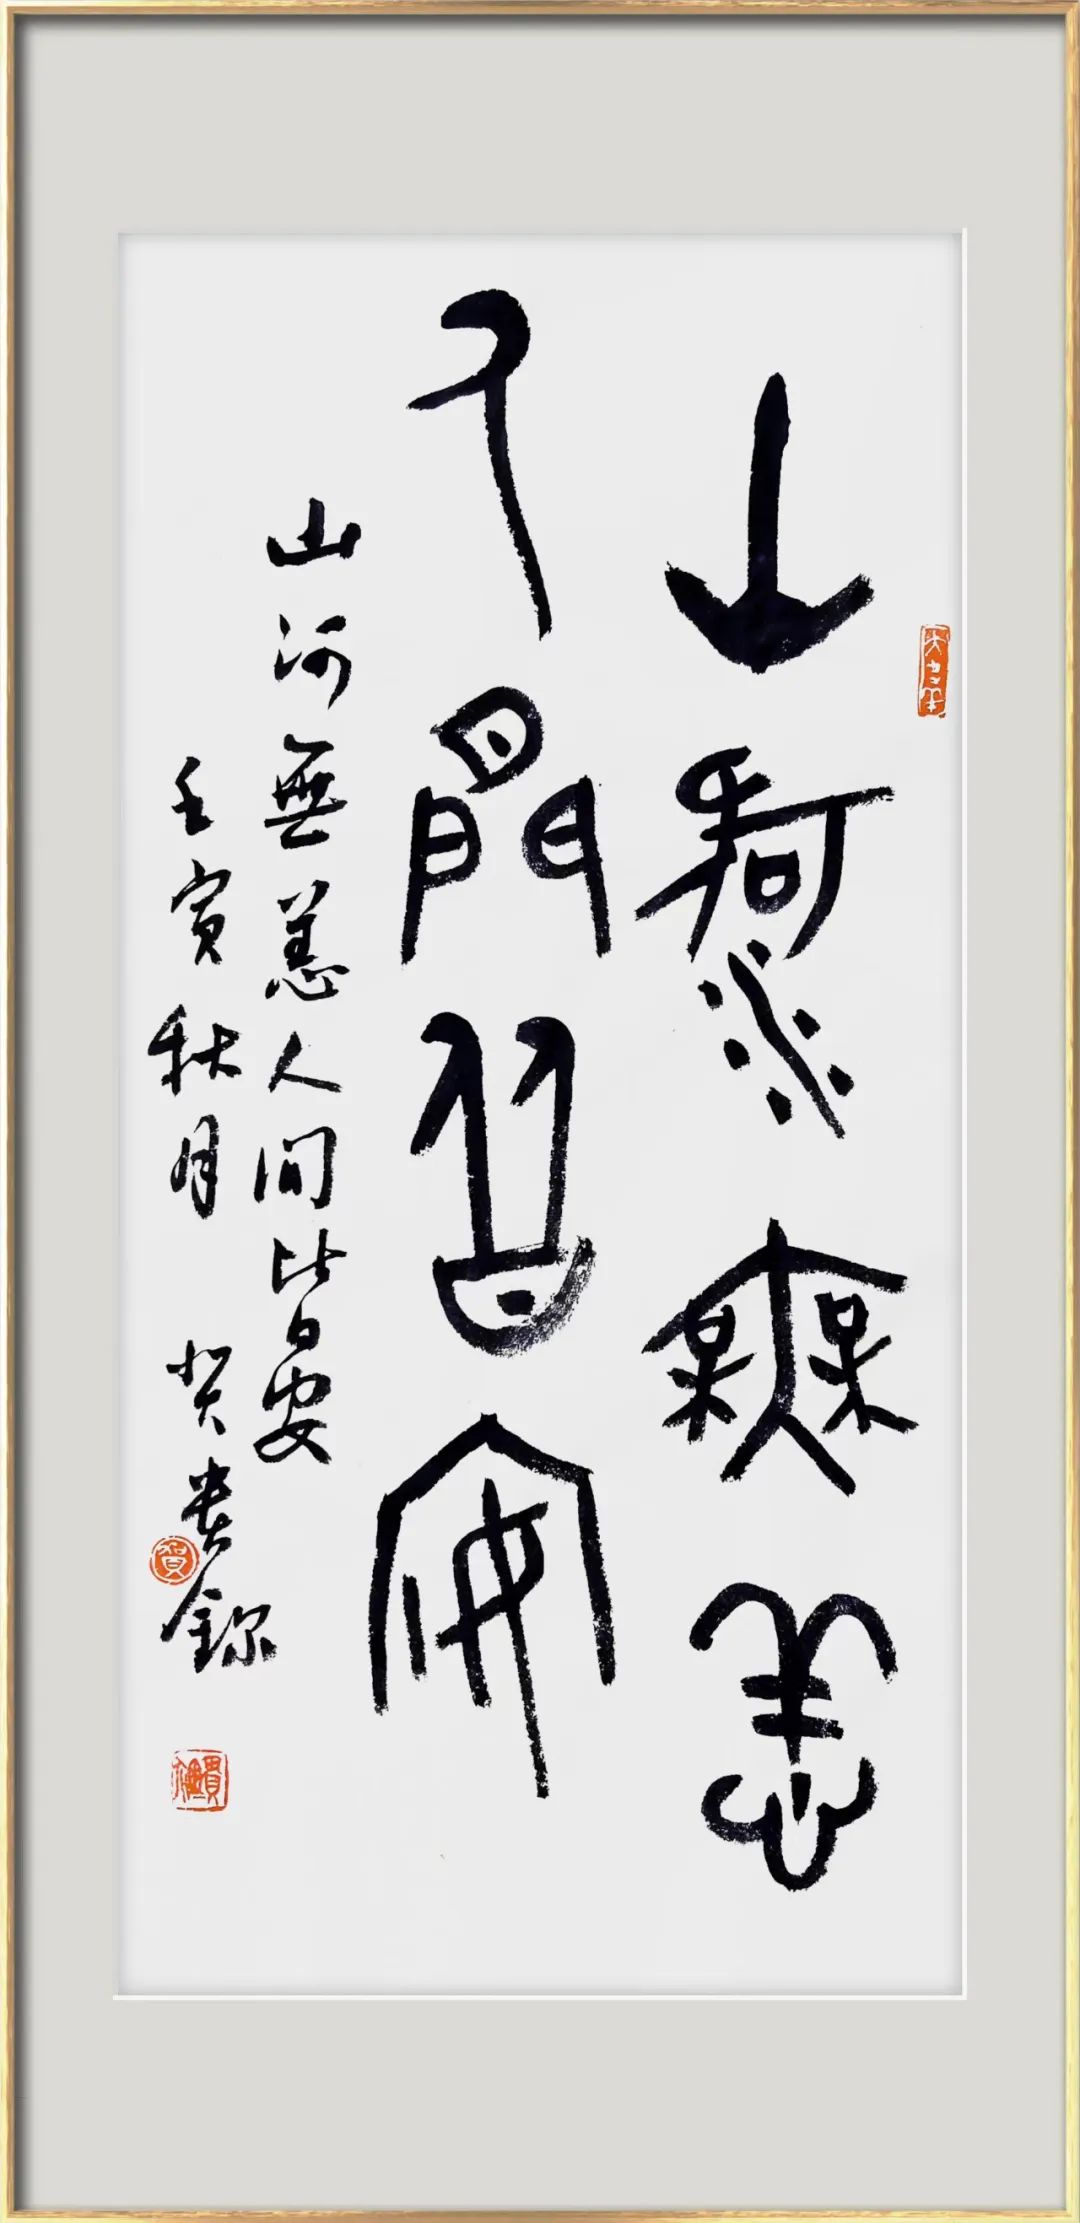 山河無恙
人間皆安
山河無恙人間皆安
壬寅秋月